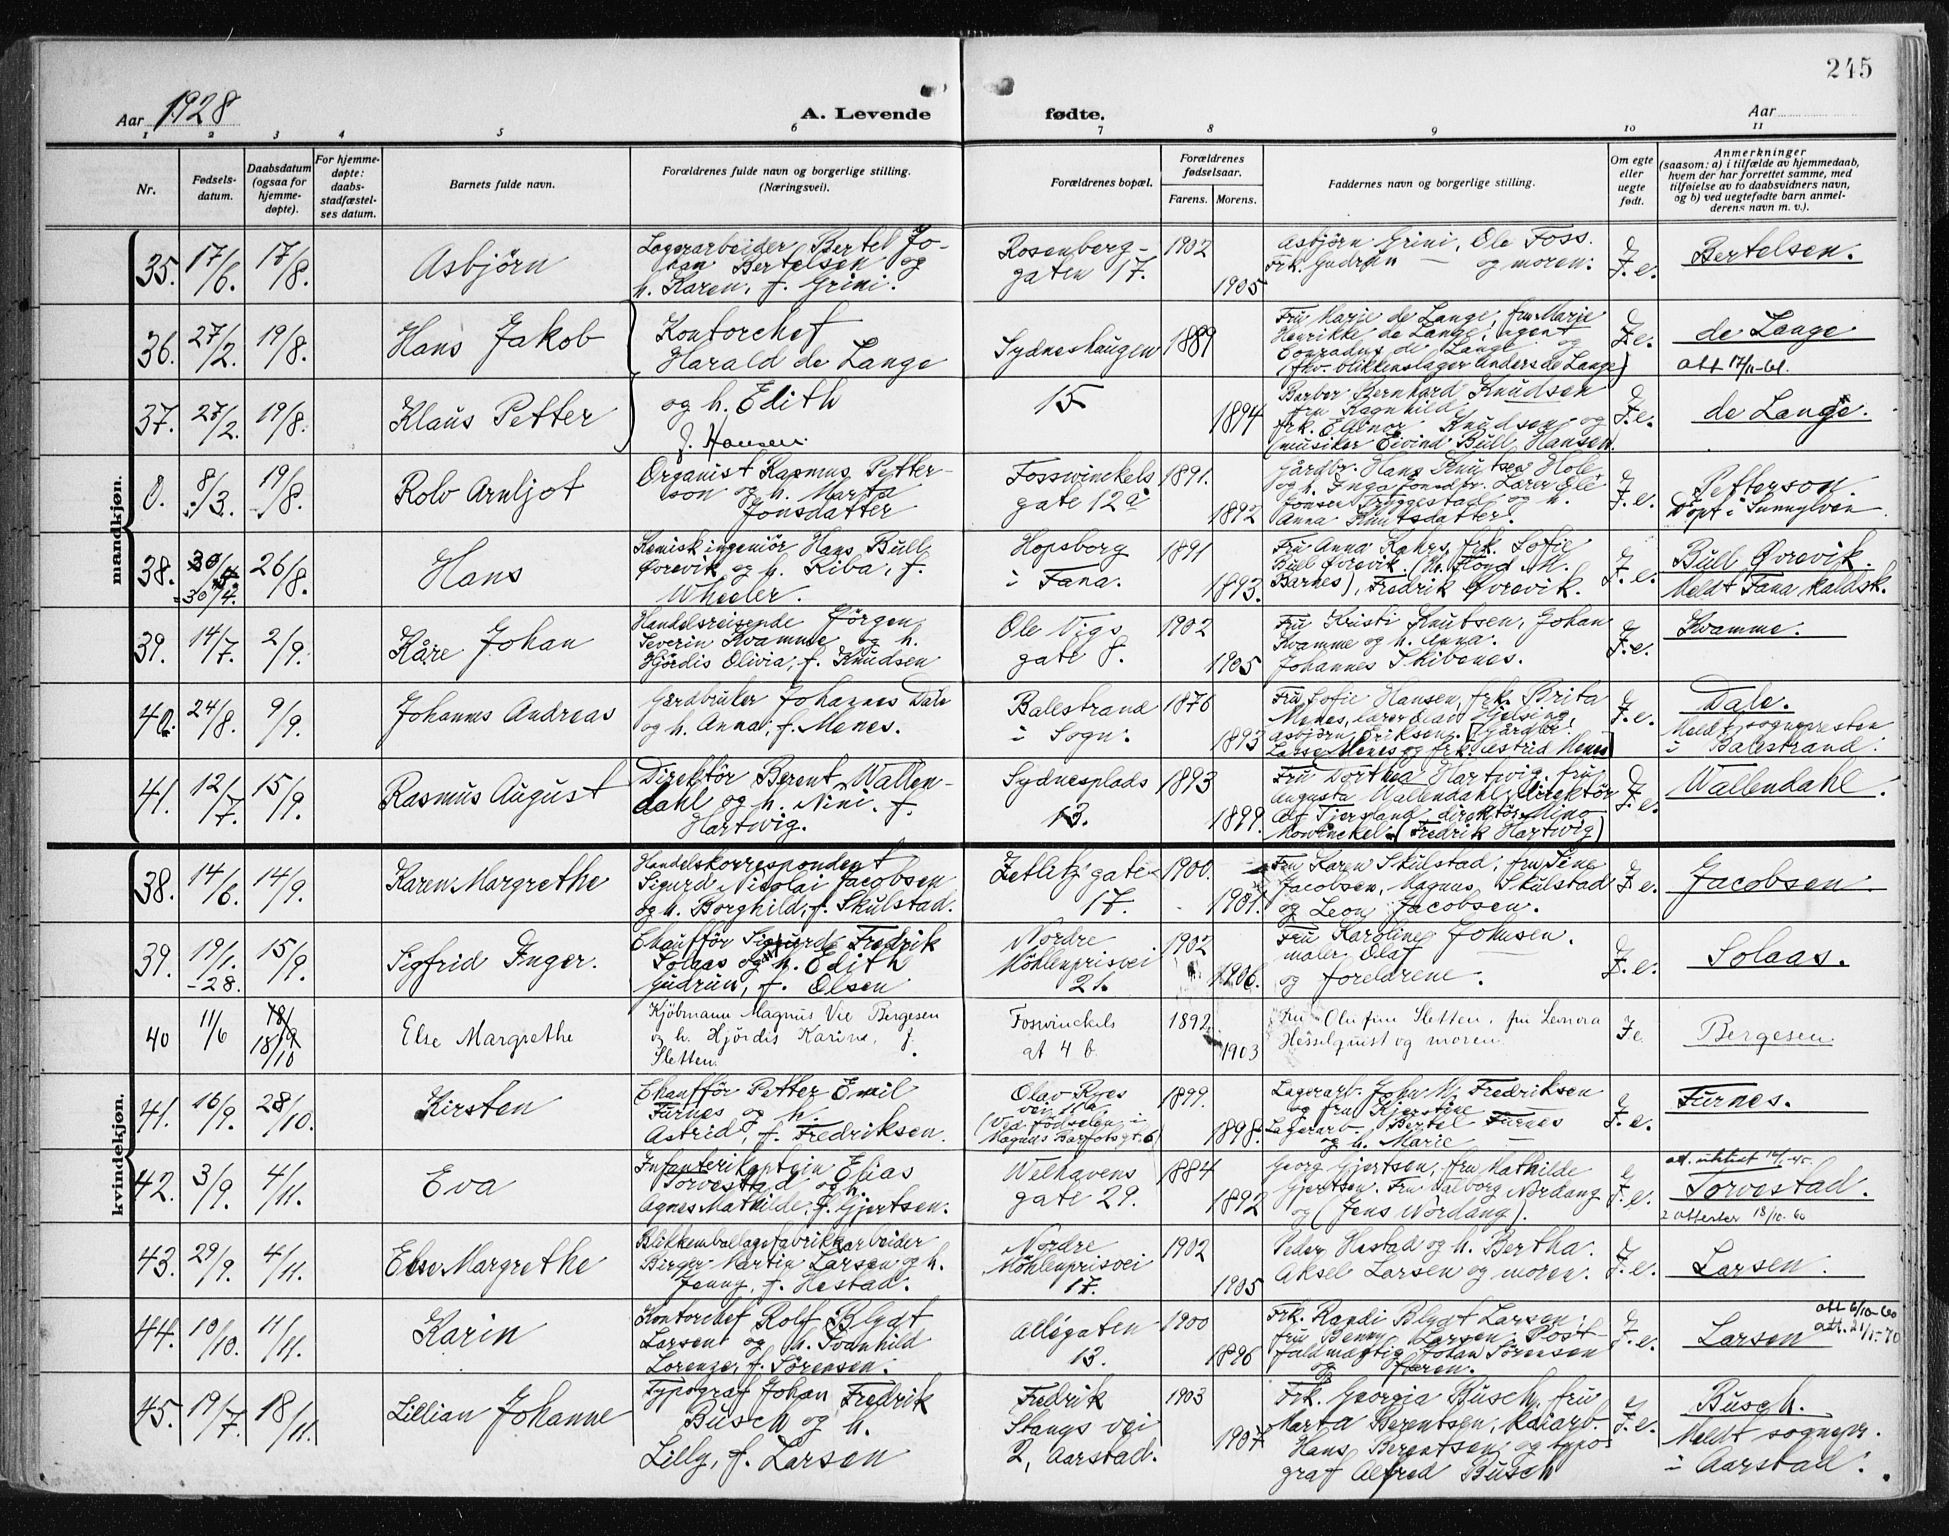 245
Aar 1928
A. Levende fødte.
Aar
1 2 3 4 5 6 7 8 9 10 11
Nr.
Fødsels-
datum.
Daabsdatum
(ogsaa for
hjemme-
døpte).
For hjemme-
døpte:
daabs-
stadfæstel-
ses datum.
Barnets fulde navn.
Forældrenes fulde navn og borgerlige stilling.
(Næringsvei).
Forældrenes bopæl.
Forældrenes
fødselsaar.
Farens. Morens.
Faddernes navn og borgerlige stilling.
Om egte
eller
uegte
født.
Anmerkninger
(saasom: a) i tilfælde av hjemmedaab,
hvem der har forrettet samme, med
tilføielse av to daabsvidners navn,
og b) ved uegtefødte barn anmel-
derens navn m. v.).
mandkjøn.
35. 17/6. 17/8. Asbjörn
Lagerarbeider Bertel Jo-
han Bertelsen og
h. Karen, f. Grini.
Rosenberg-
gaten 17.
1902
1905
Asbjörn Grini, Ole Foss.
Frk. Gudrun — og moren.
F. e.
Bertelsen.
36. 27/2. 19/8. Hans Jakob
Kontorchef
Harald de Lange
Sydneshaugen
1889
Fru Marie de Lange, fru Marje
Henrikke de Lange, agent
Conradus de Lange og
(fhv. blikkenslager Anders de Lange)
F. e.
de Lange
att 17/11-61.
37. 27/2. 19/8. Klaus Petter
og h. Edith
f. Hansen.
15
1894
Barber Bernhard Knudsen
fru Ragnhild
frk. Ellinor Knudsen og
(musiker Eivind Bull Hansen.
F. e.
de Lange.
0. 8/3. 19/8. Rolv Arnljot
Organist Rasmus Petter-
son og h. Marta
Jonsdatter
Fosswinckels
gate 12a
1891.
1892
Gårdbr. Hans Knutsen Hole
og h. Inga Lærer Ole
Jonsen Tryggestad og h.
Anna Knutsdatter.
F. e.
Petterson.
Döpt i Sunnylven
38. 30/4. 26/8. Hans
Kemisk ingeniör Hans Bull
Øvrevik og h. Riba, f.
Wheeler.
Hopsborg
i Fana.
1891
1893.
Fru Anna Rohrs, frk. Sofie
Bull Øvrevik. (Mr. Floyd M.
Barnes), Fredrik Øvrevik.
F. e.
Bull Øvrevik.
Meldt Fana kaldsk.
39. 14/7. 2/9. Kåre Johan
Handelsreisende Jörgen
Severin Kvamme og h.
Hjördis Olivia, f. Knudsen
Ole Vigs
gate 8.
1902
1905
Fru Kristi Knutsen, Johan
Kvamme og h. Anna.
Johannes Skibenes.
F. e.
Kvamme.
40. 24/8. 9/9. Johannes Andreas
Gårdbruker Johannes Dale
og h. Anna, f. Menes.
Balestrand
i Sogn.
1876
1893
Fru Sofie Hansen, frk. Brita
Menes, lærer Olav Hjelsing,
Asbjørn Eriksen. (Gårdbr.
Lasse Menes og frk. Astrid Menes)
F. e.
Dale.
Meldt sognepresten
i Balestrand.
41. 12/7. 15/9. Rasmus August
Direktör Berent Wallen-
dahl og h. Nini, f.
Hartvig.
Sydnesplads
13.
1893
1899.
Fru Dorthea Hartvig, fru
Augusta Wallendahl, direktör
Alf Tjersland, direktör Mino
Mowinckel. (Fredrik Hartvig)
F. e.
Wallendahl.
kvindekjøn.
38. 14/6. 14/9. Karen Margrethe
Handelskorrespondent
Sigurd Nicolai Jacobsen
og h. Borghild, f. Skulstad.
Zetlitz gate
17.
1900.
1901.
Fru Karen Skulstad, fru Sine
Jacobsen, Magnus Skulstad
og Leon Jacobsen.
F. e.
Jacobsen.
39. 19/1.-28. 15/9. Sigfrid Inger.
Chaufför Sigurd Fredrik
Solaas og h. Edith
Gudrun, f. Olsen
Nordre
Möhlenprisvei
21.
1902
1906.
Fru Karoline Johnsen.
maler Olaf —
og foreldrene.
F. e.
Solaas.
40 11/6 18/10 Else Margrethe
Kjöbmann Magnus Vie Bergesen
og h. Hjördis Karine, f.
Sletten.
Foswinckels
gt 4 b.
1892
1903
Fru Olufine Sletten, fru Lenora
Hesselquist og moren
F. e.
Bergesen.
41. 16/9. 28/10. Kirsten
Chaufför Petter Emil
Fürnes og h.
Astrid, f. Fredriksen.
Olav Ryes
vei 11a.
(Ved födselen i
Magnus Barfotsgt. 6)
1899.
1898.
Lagerarb. John M. Fredriksen
og fru Kjerstine —
Lagerarb. Bertel Fürnes
og h. Marie —
F. e.
Fürnes.
42. 3/9. 4/11. Eva
Infanterikaptein Elias
Torvestad og h.
Agnes Mathilde, f. Gjertsen.
Welhavens
gate 29.
1884
1892
Georg Gjertsen, fru Mathilde
Gjertsen. Fru Valborg Nordang
og (Jens Nordang).
F. e.
att. utstedt
Torvestad.
2 attester 18/10.60
43. 29/9. 4/11. Else Margrethe
Blikkemballagefabrikkarbeider
Birger Martin Larsen og h.
Jenny, f. Hestad.
Nordre
Möhlenprisvei
17.
1902
1905
Peder Hestad og h. Bertha.
Aksel Larsen og moren.
F. e.
Larsen.
44. 10/10. 11/11. Karin
Kontorchef Rolf Blydt
Larsen og h. Svanhild
Lorenze, f. Sörensen.
Allégaten
13.
1900
1896
Frk. Randi Blydt Larsen,
fru Benny Larsen, Post-
fuldmægtig Johan Sörensen
og faren.
F. e.
att 6/10-60
att. 21/1-70
Larsen
45. 19/7. 18/11. Lillian Johanne
Typograf Johan Fredrik
Busch og h.
Lilly, f. Larsen
Fredrik
Stangs vei
2, Aarstad.
1903
1907
Frk. Georgia Busch, fru
Marta Berentsen, kaiarb.
Hans Berentsen, og typo-
graf Alfred Busch
F. e.
Busch.
Meldt sognepr.
i Aarstad.